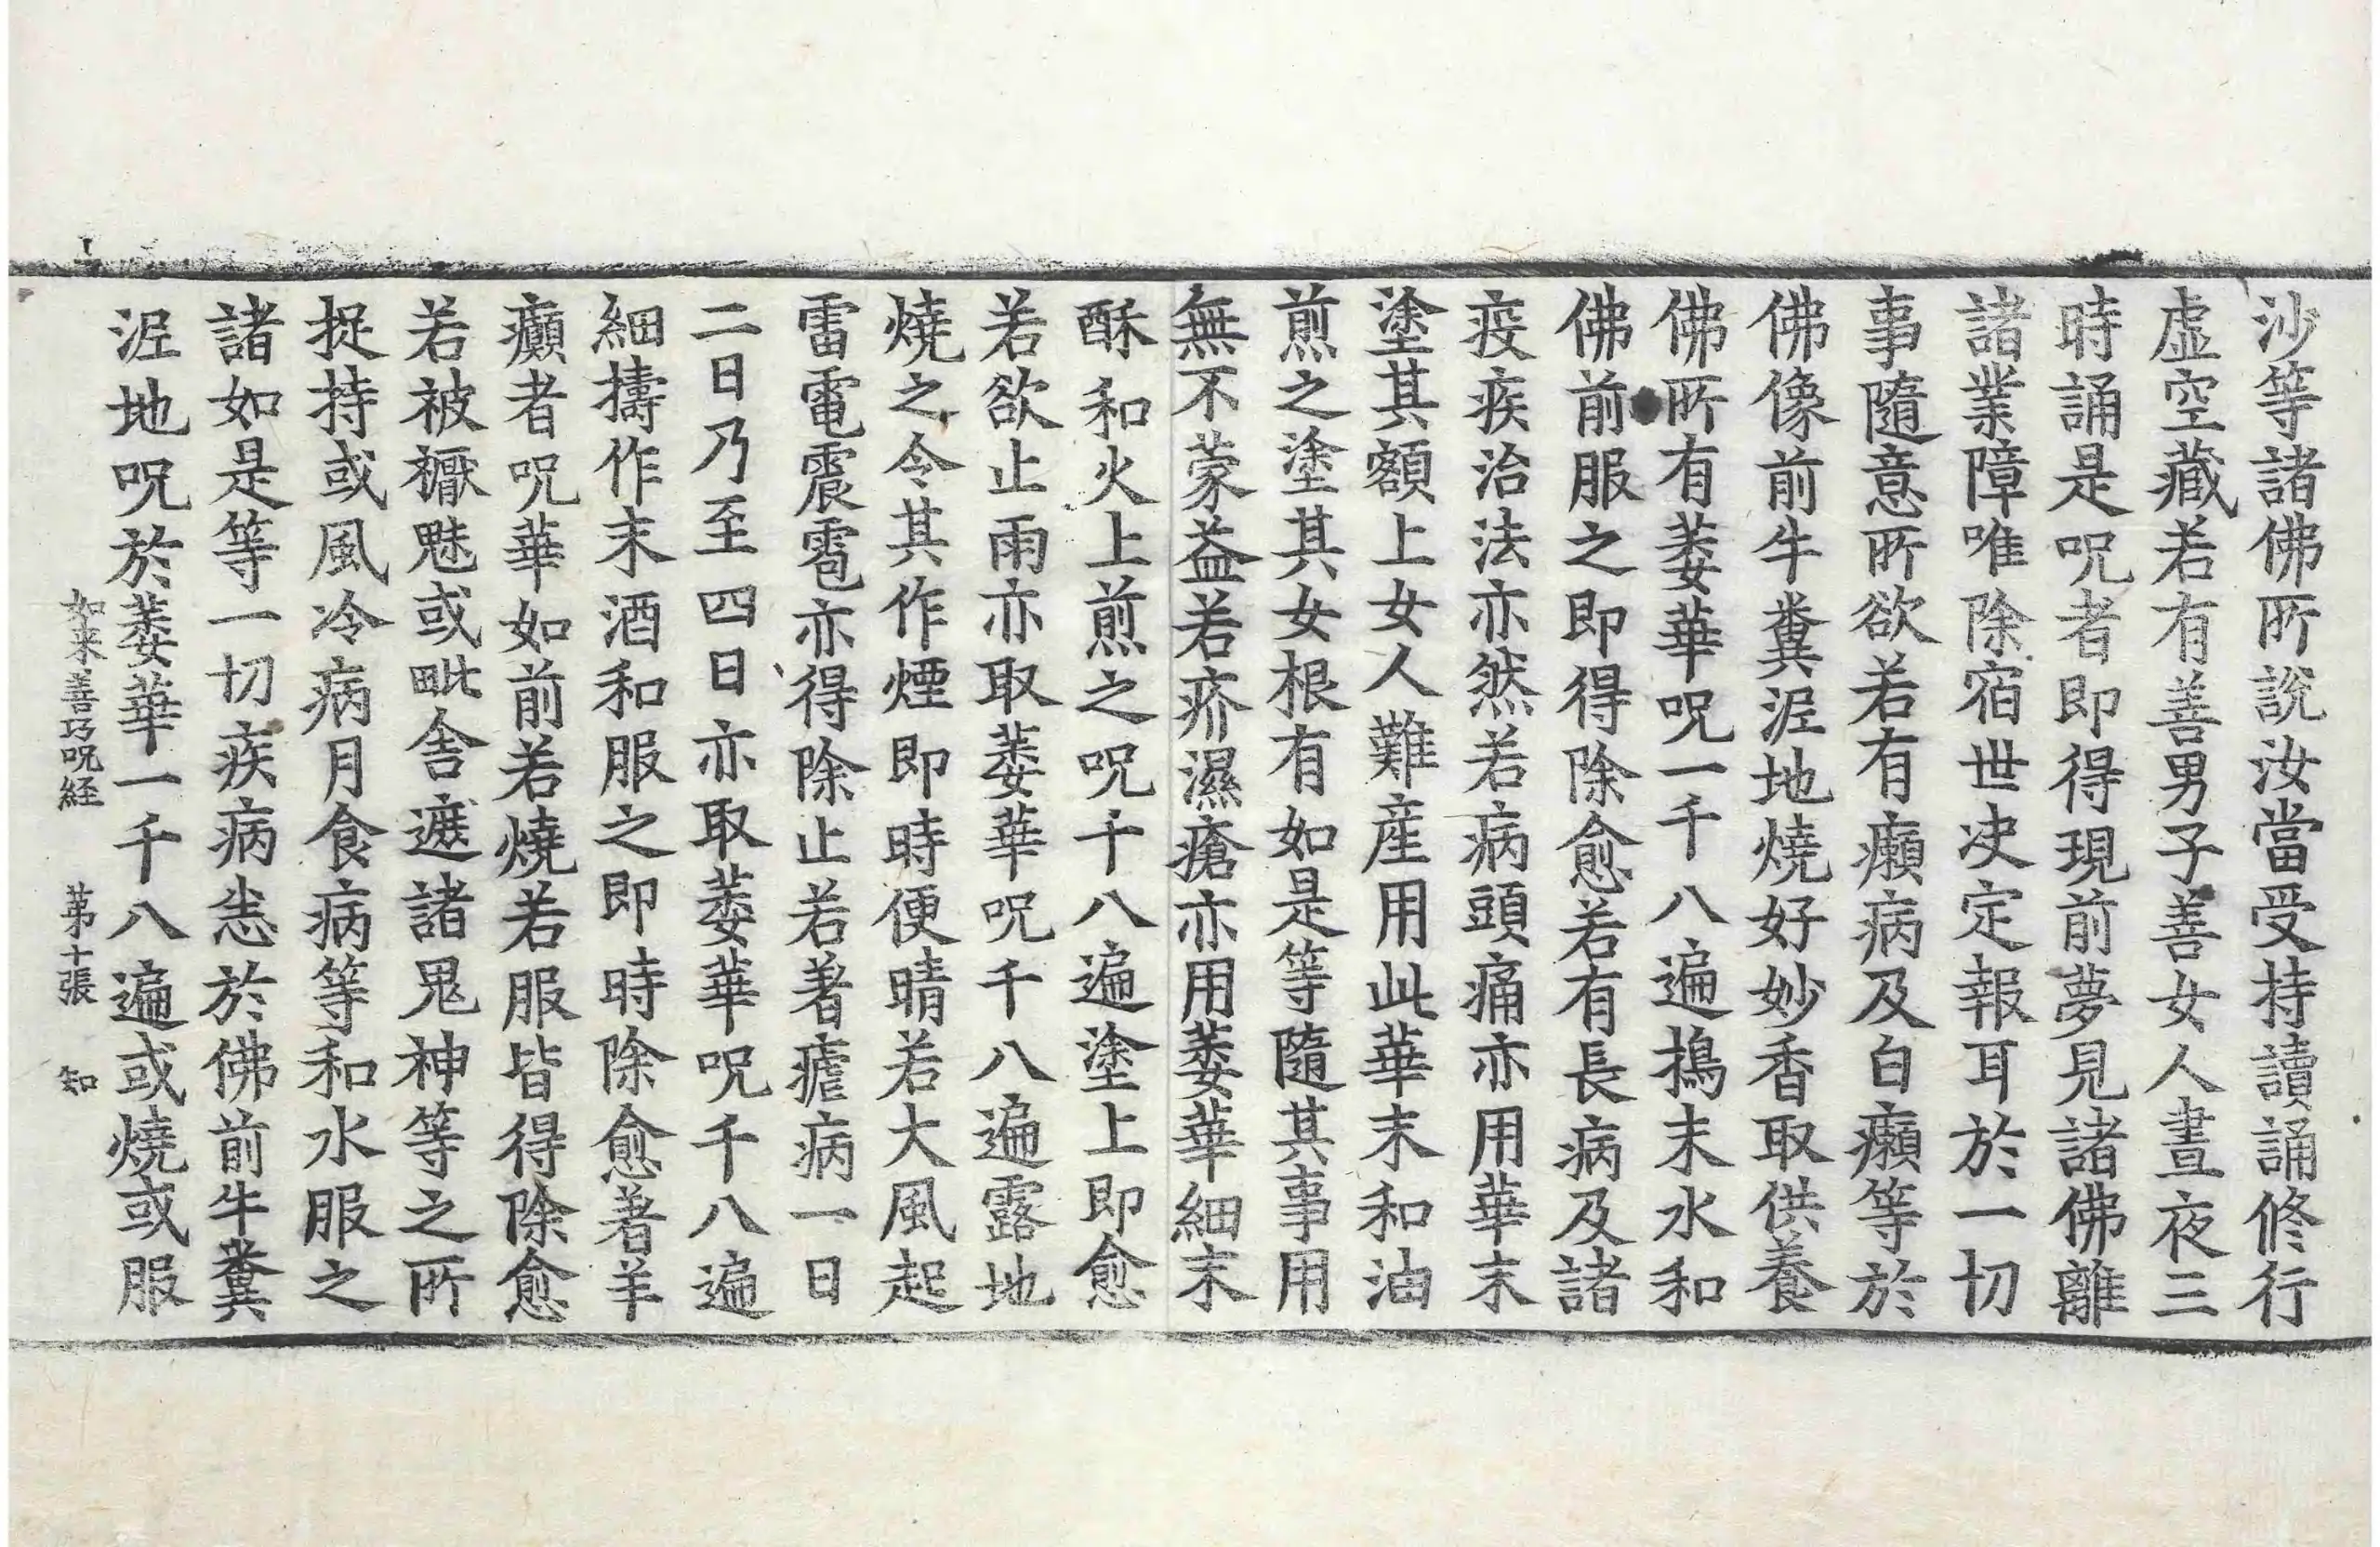 沙等諸佛所說汝當受持讀誦修行
虛空藏若有善男子善女人晝夜三
時誦是呪者即得現前夢見諸佛離
諸業障唯除宿世决定報耳於一切
事隨意所欲若有癩病及白癩等於
佛像前牛糞泥地燒好妙香取供養
佛所有萎華呪一千八遍擣末水和
佛前服之即得除愈若有長病及諸
疫疾治法亦然若病頭痛亦用華末
塗其額上女人難産用此華末和油
煎之塗其女根有如是等隨其事用
無不蒙益若疥濕瘡亦用萎華細末
酥和火上煎之呪千八遍塗上即愈
若欲止雨亦取萎華呪千八遍露地
燒之令其作煙即時便晴若大風起
雷電震雹亦得除止若著瘧病一日
二日乃至四日亦取萎華呪千八遍
細擣作末酒和服之即時除愈著羊
癲者呪華如前若燒若服皆得除愈
若被𥜒魅或毗舍遮諸鬼神等之所
捉持或風冷病月食病等和水服之
諸如是等一切疾病恙於佛前牛糞
泥地呪於萎華一千八遍或燒或服
如来善巧呪経　第十張　知